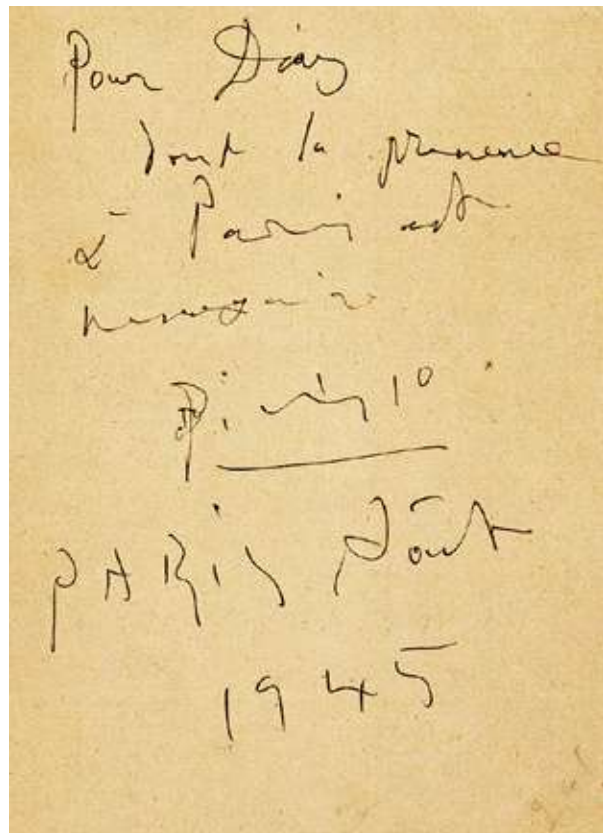 Pour
dont la présence
à Paris est
nécessaire
PARis Août
1945